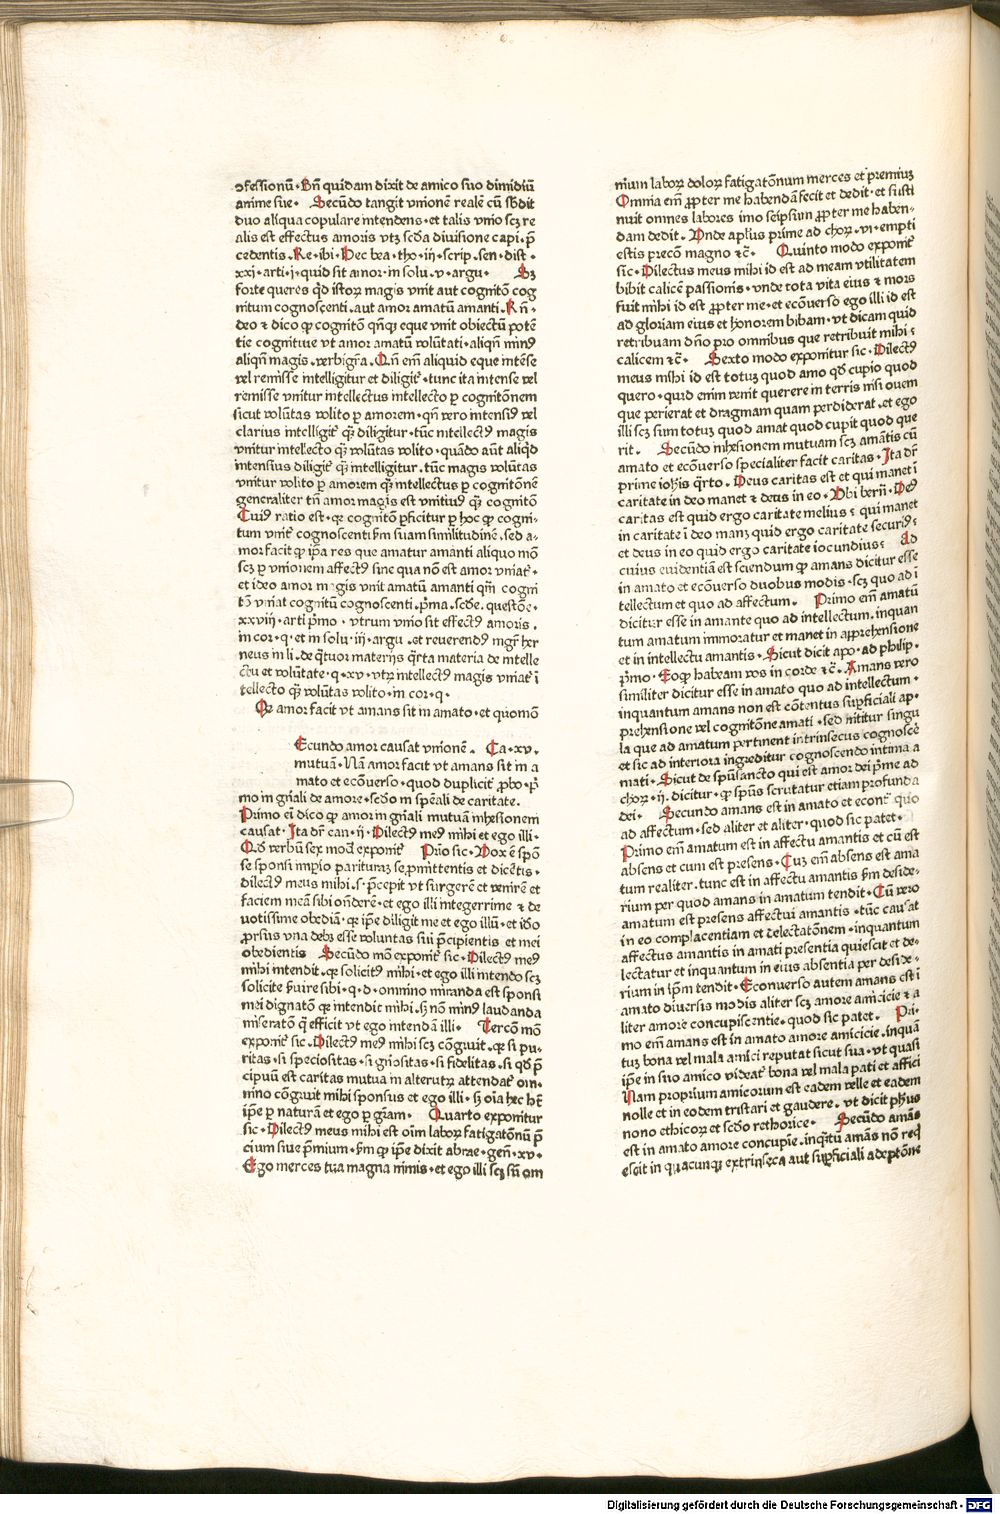 ↄfessionū · Bn̄ quidam dixit de amico suo dimidiū
anime sue · Secūdo tangit vnionē realē cū sƀdit
duo aliqua copulare intendens · et talis vnio scꝫ re
alis est effectus amoris vtꝫ scd̄a diuisione capi · p̄
cedentis · Re · ibi · Hec bea · tho · iij · scrip · sen · dist ·
xxj · arti · j · quid sit amor · in solu · v · argu · Sꝫ
forte queres qd̄ istoꝝ magis vnit aut cognitō cog
nitum cognoscenti · aut amor amatū amanti · Rn̄ ·
deo ⁊ dico ꝙ cognitō qn̄qꝫ eque vnit obiectū potē
tie cognitiue vt amor amatū volūtati · aliqn̄ minꝰ
aliqn̄ magis · verbigr̄a · Qn̄ em̄ aliquid eque intēse
vel remisse intelligitur et diligit᷑ · tunc ita intense vel
remisse vnitur intellectus intellecto ꝑ cognitōnem
sicut volūtas volito ꝑ amorem · qn̄ vero intensiꝰ vel
clarius intelligit᷑ qꝫ̄ diligitur · tūc intellectꝰ magis
vnitur intellecto qꝫ̄ volūtas volito · quādo aūt aliqd̓
intensius diligit᷑ qꝫ̄ intelligitur · tūc magis volūtas
vnitur volito ꝑ amorem qꝫ̄ intellectus ꝑ cognitōnē
generaliter tn̄ amor magis est vnitiuꝰ qꝫ̄ cognitō
Cuiꝰ ratio est · qꝛ cognitō ꝑficitur ꝑ hoc ꝙ cogni-
tum vnit᷑ cognoscenti ẜm suam similitudinē · sed a-
mor facit ꝙ ip̄a res que amatur amanti aliquo mō
scꝫ ꝑ vnionem affectꝰ sine qua nō est amor vniat᷑ ·
et ideo amor magis vnit amatū amanti qm̄ cogni
tō vniat cognitū cognoscenti · p̄ma · scd̄e · questōe ·
xxviij · arti p̄mo · vtrum vnio sit effectꝰ amoris ·
in cor · q · et in solu · iij · argu · et reuerendꝰ mgr̄ her
neus in li · de q̄tuor materijs q̄rta materia de intelle
ctu et volūtate · q · xv · vtꝝ intellectꝰ magis vniat᷑ ī
tellecto qꝫ̄ volūtas volito · in cor · q ·
Qꝛ amor facit vt amans sit in amato · et quomō
Ecundo amor causat vnionē · Ca · xv ·
mutuā · Nā amor facit vt amans sit in a
mato et ecōuerso · quod duplicit᷑ ꝓbo · p̄
mo in gn̄ali de amore · scd̄o in spēali de caritate.
Primo eī dico ꝙ amor in gn̄ali mutuā inhesionem
causat · Ita dr̄ can · ij · Dilectꝰ meꝰ mihi et ego illi ·
Qd̓ verbū sex mod̄ exponit᷑ Pm̄o sic · Vox ē spō
se sponsi impio parituraꝫ se ꝓmittentis et dicētis ·
dilectꝰ meus mihi · s · p̄cepit vt surgerē et venirē et
faciem meā sibi ondērē · et ego illi integerrime ⁊ de
uotissime obediā · qꝛ ip̄e diligit me et ego illū · et id̄o
ꝓrsus vna debꝫ esse voluntas sui p̄cipientis et mei
obedientis Secūdo mō exponit᷑ sic · Dilectꝰ meꝰ
mihi intendit · qꝛ solicitꝰ mihi · et ego illi intendo scꝫ
solicite ẜuire sibi · q · d · omnino miranda est sponsi
mei dignatō qꝛ intendit mihi · sꝫ nō minꝰ laudanda
miseratō q̄ efficit vt ego intendā illi · Tercō mō
exponit᷑ sic · Dilectꝰ meꝰ mihi scꝫ cōgruit · qꝛ si pu-
ritas · si speciositas · si gn̄ositas · si fidelitas · si qd̓ p̄
cipuū est caritas mutua in alterutꝝ attendat᷑ om-
nino cōgruit mihi sponsus et ego illi · sꝫ oīa hec hꝫ
ip̄e ꝑ naturā et ego ꝑ gr̄am · Quarto exponitur
sic · Dilectꝰ meus mihi est oīm laboꝝ fatigatōnū p̄
cium siue p̄mium · ẜm ꝙ ip̄e dixit abrae · gen̄ · xv ·
Ego merces tua magna nimis · et ego illi scꝫ sū om
nium laboꝝ doloꝝ fatigatōnum merces et premiuꝫ
Omnia em̄ ꝓpter me habendā fecit et dedit · et susti
nuit omnes labores imo seipsum ꝓpter me haben-
dam dedit · Vnde apl̓us prime ad choꝝ · vi · empti
estis precō magno ⁊c̄ · Quinto modo exponit᷑
sic · Dilectus meus mihi id est ad meam vtilitatem
bibit calicē passionis · vnde tota vita eius ⁊ mors
fuit mihi id est ꝓpter me · et ecōuerso ego illi id est
ad gloriam eius et honorem bibam · vt dicam quid
retribuam dn̄o pro omnibus que retribuit mihi :
calicem ⁊c̄ · Sexto modo exponitur sic · Dilectꝰ
meus mihi id est totuꝫ quod amo qd̓ cupio quod
quero · quid enim venit querere in terris nisi ouem
que perierat et dragmam quam perdiderat · et ego
illi scꝫ sum totuꝫ quod amat quod cupit quod que
rit · Secūdo inhesionem mutuam scꝫ amātis cū
amato et ecōuerso specialiter facit caritas · Ita dr̄
prime ioh̄is q̄rto · Deus caritas est et qui manet ī
caritate in deo manet ⁊ deus in eo · Vbi bern̄ · Deꝰ
caritas est quid ergo caritate melius : qui manet
in caritate ī deo manꝫ quid ergo caritate securiꝰ :
et deus in eo quid ergo caritate iocundius : Ad
cuius euidentiā est sciendum ꝙ amans dicitur esse
in amato et ecōuerso duobus modis · scꝫ quo ad ī
tellectum et quo ad affectum · Primo em̄ amatū
dicitur esse in amante quo ad intellectum · inquan
tum amatum immoratur et manet in apprehensione
et in intellectu amantis · Sicut dicit apo · ad philip ·
p̄mo · Eoꝙ habeam vos in corde ⁊c̄ · Amans vero
similiter dicitur esse in amato quo ad intellectum ·
inquantum amans non est cōtentus sup̄ficiali ap-
prehensione vel cognitōne amati · sed nititur singu
la que ad amatum pertinent intrinsecus cognoscē
et sic ad interiora ingreditur cognoscendo intima a
mati · Sicut de spūsancto qui est amor dei p̄me ad
choꝝ · ij · dicitur · ꝙ spūs scrutatur etiam profunda
dei · Secundo amans est in amato et econt᷑ quo
ad affectum · sed aliter et aliter · quod sic patet ·
Primo em̄ amatum est in affectu amantis et cū est
absens et cum est presens · Cuꝫ em̄ absens est ama
tum realiter · tunc est in affectu amantis ẜm deside-
rium per quod amans in amatum tendit · Cū vero
amatum est presens affectui amantis · tūc causat
in eo complacentiam et delectatōnem · inquantum
affectus amantis in amati presentia quiescit et de-
lectatur et inquantum in eius absentia per deside-
rium in ip̄m tendit · Econuerso autem amans est ī
amato diuersis modis aliter scꝫ amore amicicie ⁊ a
liter amore concupiscentie · quod sic patet · Pri-
mo em̄ amans est in amato amore amicicie · inquā
tuꝫ bona vel mala amici reputat sicut sua · vt quasi
ip̄e in suo amico videat᷑ bona vel mala pati et affici
Nam proprium amicorum est eadem velle et eadem
nolle et in eodem tristari et gaudere · vt dicit ph̄us
nono ethicoꝝ et scd̄o rethorice · Secūdo amās
est in amato amore concupie · inq̄tū amās nō req̄
escit in quacunqꝫ extrinseca aut sup̄ficiali adeptōne
Digitalisierung gefördert durch die Deutsche Forschungsgemeinschaft - DFG